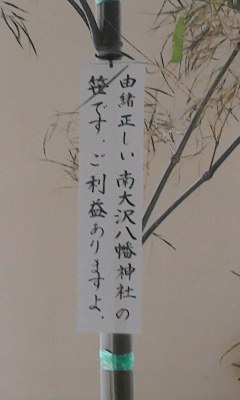 由緒正しい南大沢八幡神社の
笹です。ご利益ありますよ。